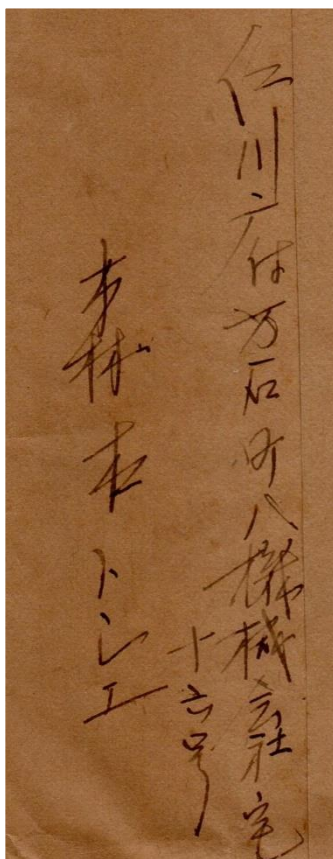 仁川府万石町八機械会社宅
十六号
森本トシエ